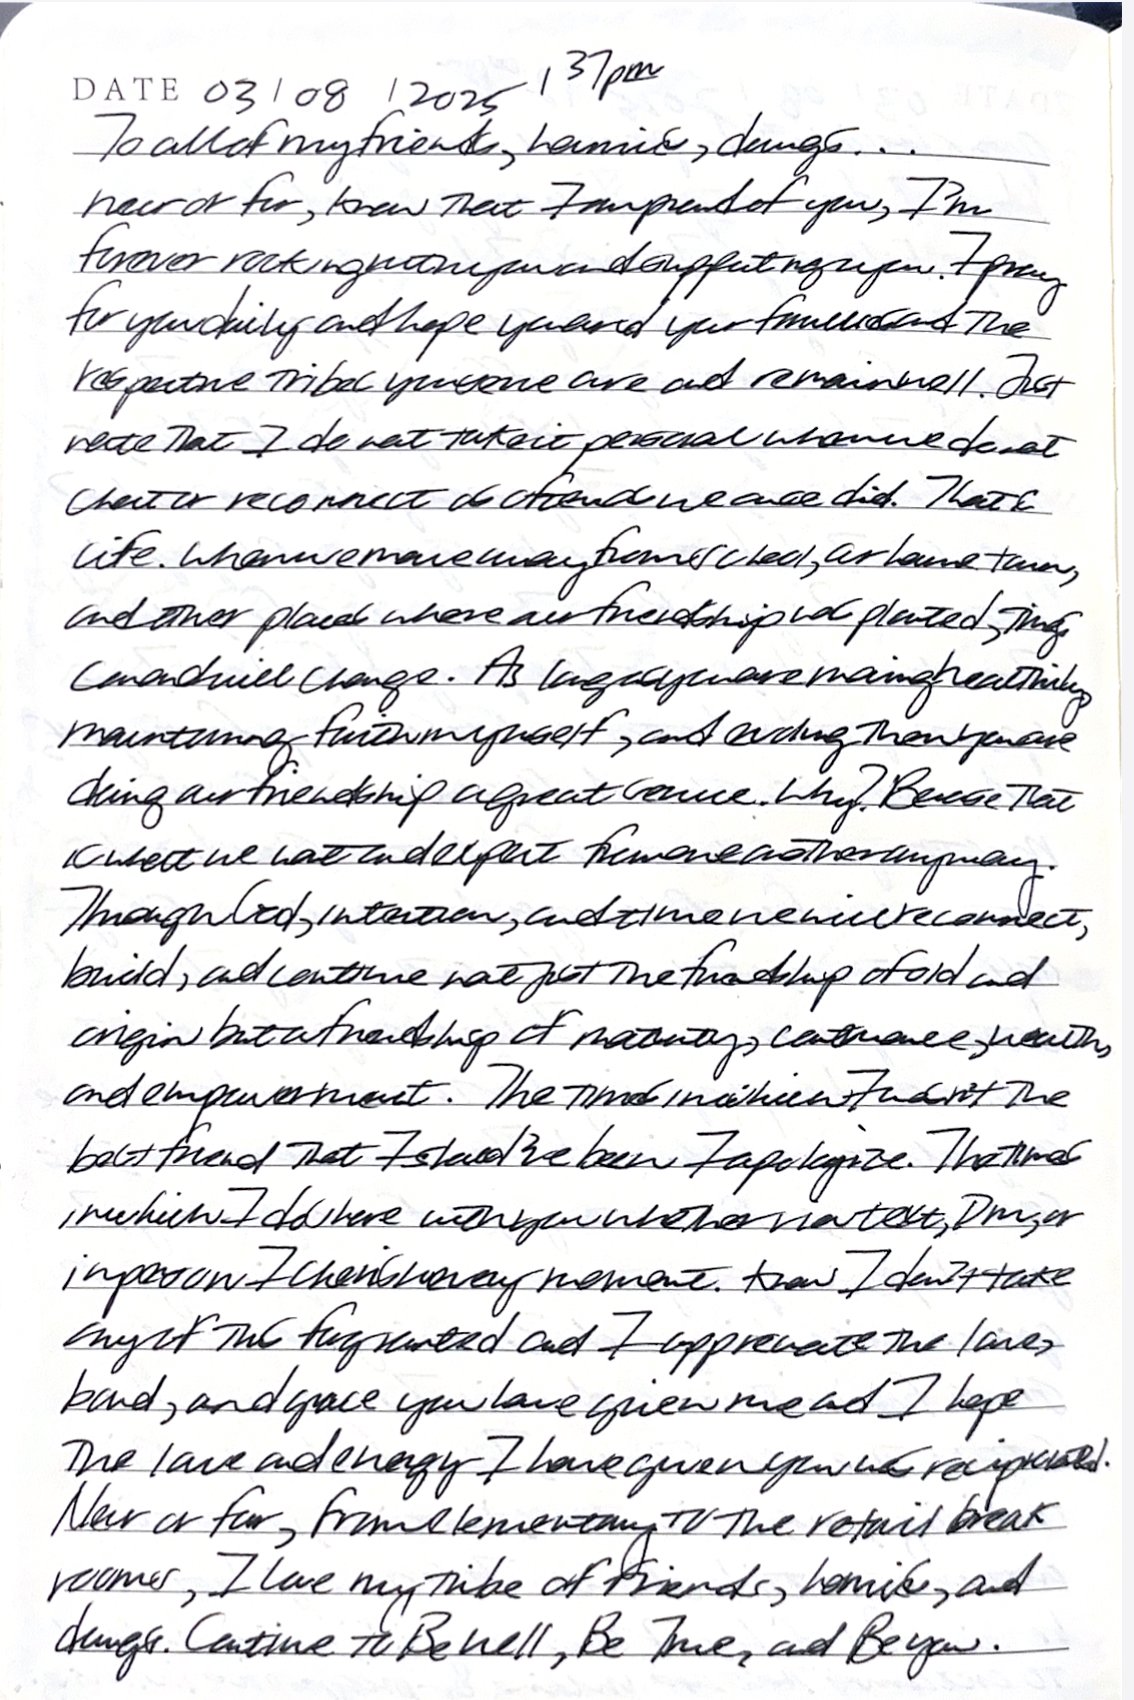 DATE 03 / 08 / 2025 1 37pm
To all of my friends, homies, dawgs...
near or far, know that I am proud of you, I'm
forever rocking with you and supporting you. I pray
for you daily and hope you and your families and the
respective tribes you some are and remain well. Just
note that I do not take it personal when we do not
chat or reconnect as often as we once did. That is
life. When we move away from school, our home town,
and other places where our friendship was planted, things
can and will change. As long as you are healthily
maintaining faith, yourself, and evolving then you are
doing our friendship a great service. Why? Because that
is what we want and expect from one another anyway.
Through God, intention, and time we will reconnect,
build, and continue not just the friendship of old and
origin but a friendship of maturity, continuance, wealth,
and empowerment. The times in which I wasn't the
best friend that I should've been I apologize. The times
in which I do have with you whether via text, Dm, or
in person I cherish every moment. Know I don't take
any of this for granted and I appreciate the love,
bond, and grace you have given me and I hope
the love and energy I have given you was reciprocated.
Near or far, from elementary to the retail break
rooms, I love my tribe of friends, homies, and
dawgs. Continue to Be well, Be True, and Be you.